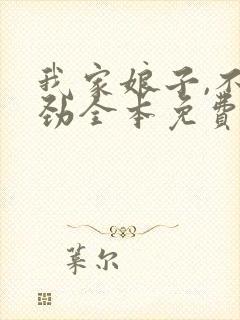 我家娘子,不
劲全本免费
莱尔